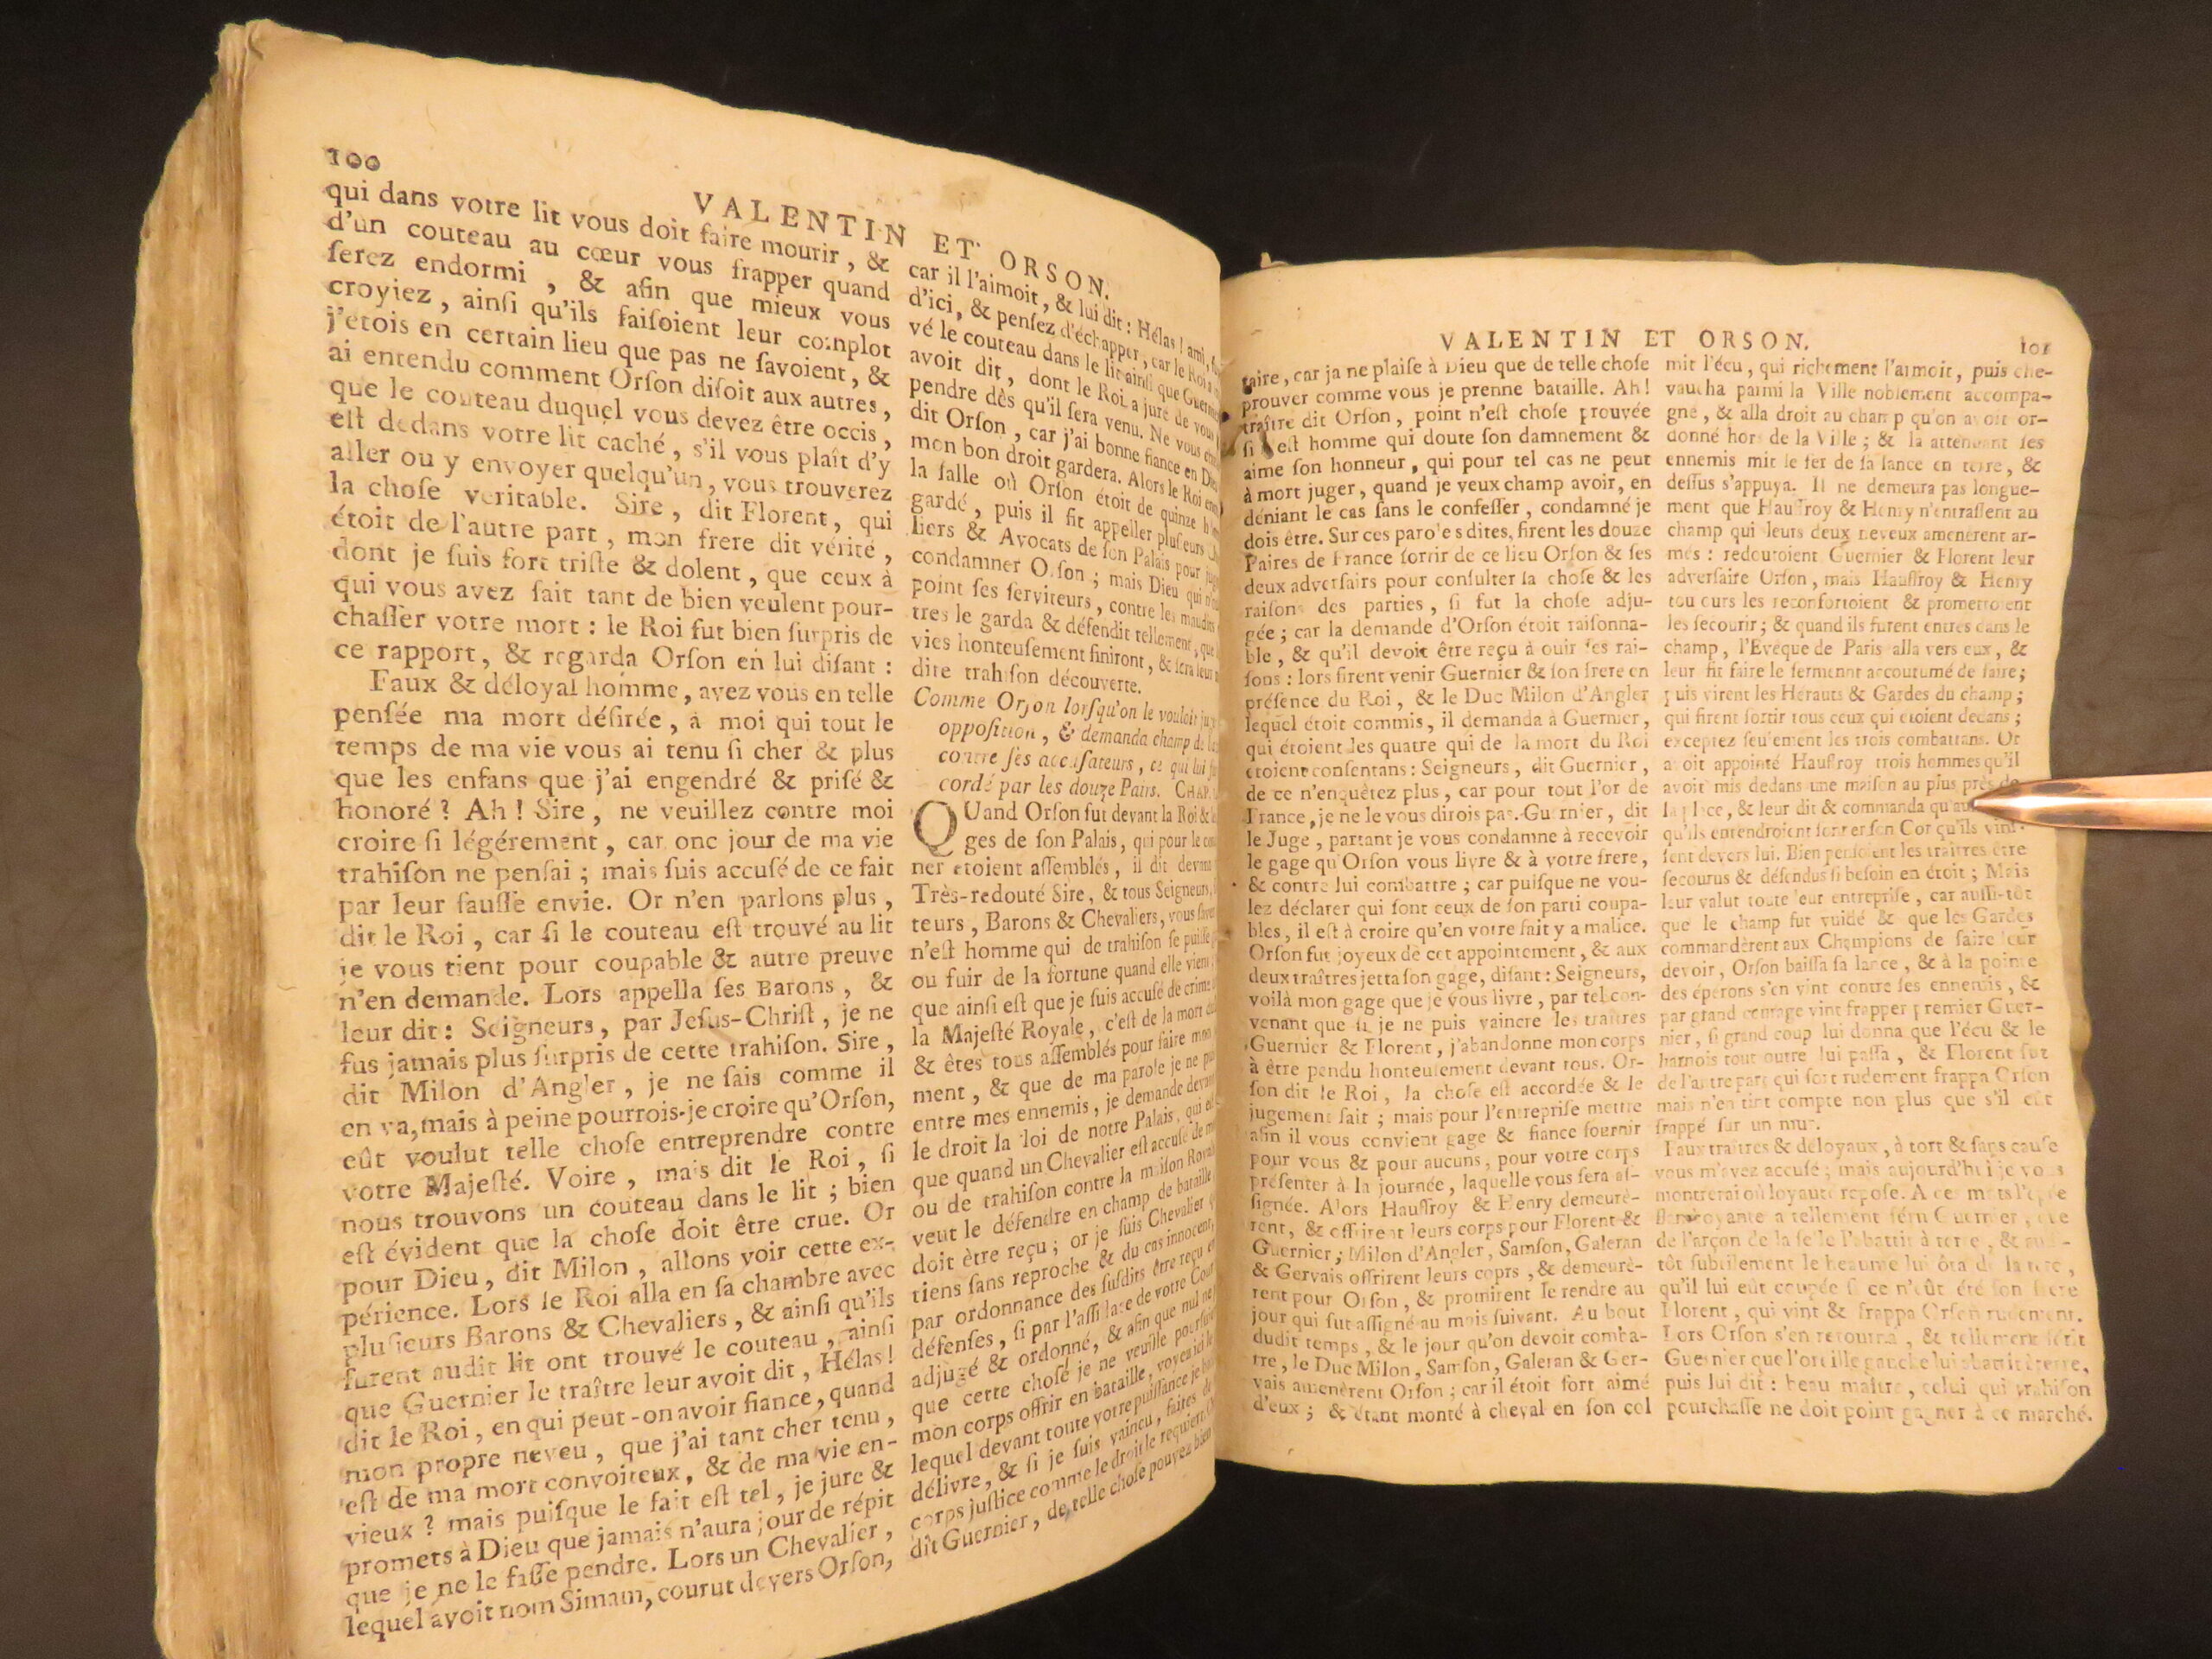 100
VALENTIN ET ORSON.
qui dans votre lit vous doit faire mourir, &
d'un couteau au cœur vous frapper quand
ſerez endormi, & afin que mieux vous
croyiez, ainſi qu'ils faiſoient leur complot
j'étois en certain lieu que pas ne ſavoient, &
ai entendu comment Orſon diſoit aux autres,
que le couteau duquel vous devez être occis,
eſt dedans votre lit caché, s'il vous plaît d'y
aller ou y envoyer quelqu'un, vous trouverez
la choſe veritable. Sire, dit Florent, qui
étoit de l'autre part, mon frere dit vérité,
dont je ſuis fort triſte & dolent, que ceux à
qui vous avez fait tant de bien veulent pour-
chaſſer votre mort : le Roi fut bien ſurpris de
ce rapport, & regarda Orſon en lui diſant :
Faux & déloyal homme, avez vous en telle
penſée ma mort déſirée, à moi qui tout le
temps de ma vie vous ai tenu ſi cher & plus
que les enfans que j'ai engendré & priſé &
honoré ? Ah ! Sire, ne veuillez contre moi
croire ſi légérement, car onc jour de ma vie
trahiſon ne penſai ; mais ſuis accuſé de ce fait
par leur fauſſe envie. Or n'en parlons plus,
dit le Roi, car ſi le couteau eſt trouvé au lit
je vous tient pour coupable & autre preuve
n'en demande. Lors appella ſes Barons, &
leur dit : Seigneurs, par Jeſus-Chriſt, je ne
fus jamais plus ſurpris de cette trahiſon. Sire,
dit Milon d'Angler, je ne ſais comme il
en va, mais à peine pourrois-je croire qu'Orſon,
eût voulut telle choſe entreprendre contre
votre Majeſté. Voire, mais dit le Roi, ſi
nous trouvons un couteau dans le lit ; bien
eſt évident que la choſe doit être crue. Or
pour Dieu, dit Milon, allons voir cette ex-
périence. Lors le Roi alla en ſa chambre avec
pluſieurs Barons & Chevaliers, & ainſi qu'ils
furent audit lit ont trouvé le couteau, ainſi
que Guernier le traître leur avoit dit, Hélas !
dit le Roi, en qui peut-on avoir fiance, quand
mon propre neveu, que j'ai tant cher tenu,
eſt de ma mort convoiteux, & de ma vie en-
vieux ? mais puiſque le fait eſt tel, je jure &
promets à Dieu que jamais n'aura jour de répit
que je ne le faſſe pendre. Lors un Chevalier,
lequel avoit nom Simam, courut devers Orſon,
car il l'aimoit, & lui dit : Hélas ! ami,
d'ici, & penſez d'échapper, car le Roi a
vé le couteau dans le lit ainſi que Guernier
avoit dit, dont le Roi a juré de vous
pendre dès qu'il ſera venu. Ne vous
dit Orſon, car j'ai bonne fiance en Dieu
mon bon droit gardera. Alors le Roi
la ſalle où Orſon étoit de quinze
gardé, puis il fit appeller pluſieurs
liers & Avocats de ſon Palais pour
condamner Orſon ; mais Dieu qui
point ſes ſerviteurs, contre les maudits
tres le garda & défendit tellement, que
vies honteuſement finiront, & ſera leur
dite trahiſon découverte.
Comme Orſon lorſqu'on le vouloit
oppoſition, & demanda champ de
contre ſes accuſateurs, ce qui lui
cordé par les douze Pairs. CHAP.
QUand Orſon fut devant le Roi &
ges de ſon Palais, qui pour le
ner étoient aſſemblés, il dit devant
Très-redouté Sire, & tous Seigneurs,
teurs, Barons & Chevaliers, vous
n'eſt homme qui de trahiſon ſe puiſſe
ou fuir de la fortune quand elle vient
que ainſi eſt que je ſuis accuſé de crime
la Majeſté Royale, c'eſt de la mort
& êtes tous aſſemblés pour faire mon
ment, & que de ma parole je ne
entre mes ennemis, je demande devant
le droit la loi de notre Palais, qui eſt
que quand un Chevalier eſt accuſé de
ou de trahiſon contre la maiſon Royale
veut le défendre en champ de bataille
doit être reçu ; or je ſuis Chevalier
tiens ſans reproche & du cas innocent,
par ordonnance des ſuſdits être reçu
défenſes, ſi par l'aſſiſtace de votre Cour
adjugé & ordonné, & afin que nul ne
que cette choſe je ne veuille
mon corps offrir en bataille, voyez ici le
lequel devant toute votre puiſſance je
délivre, & ſi je ſuis vaincu, faites de
corps juſtice comme le droit le requiert.
dit Guernier, de telle choſe pouvez bien
VALENTIN ET ORSON.
101
taire, car ja ne plaiſe à Dieu que de telle choſe
prouver comme vous je prenne bataille. Ah !
traître dit Orſon, point n'eſt choſe prouvée
ſi eſt homme qui doute ſon damnement &
aime ſon honneur, qui pour tel cas ne peut
à mort juger, quand je veux champ avoir, en
déniant le cas ſans le confeſſer, condamné je
dois être. Sur ces paroles dites, firent les douze
Paires de France ſortir de ce lieu Orſon & ſes
deux adverſairs pour conſulter la choſe & les
raiſons des parties, ſi fut la choſe adju-
gée ; car la demande d'Orſon étoit raiſonna-
ble, & qu'il devoit être reçu à ouir ſes rai-
ſons : lors firent venir Guernier & ſon frere en
préſence du Roi, & le Duc Milon d'Angler
lequel étoit commis, il demanda à Guernier,
qui étoient les quatre qui de la mort du Roi
étoient conſentans : Seigneurs, dit Guernier,
de ce n'enquêtez plus, car pour tout l'or de
France, je ne le vous dirois pas. Guernier, dit
le Juge, partant je vous condamne à recevoir
le gage qu'Orſon vous livre & à votre frere,
& contre lui combattre ; car puiſque ne vou-
lez déclarer qui ſont ceux de ſon parti coupa-
bles, il eſt à croire qu'en votre fait y a malice.
Orſon fut joyeux de cet appointement, & aux
deux traîtres jetta ſon gage, diſant : Seigneurs,
voilà mon gage que je vous livre, par tel con-
venant que ſi je ne puis vaincre les traîtres
Guernier & Florent, j'abandonne mon corps
à être pendu honteuſement devant tous. Or-
ſon dit le Roi, la choſe eſt accordée & le
jugement fait ; mais pour l'entrepriſe mettre
afin il vous convient gage & fiance fournir
pour vous & pour aucuns, pour votre corps
préſenter à la journée, laquelle vous ſera aſ-
ſignée. Alors Hauffroy & Henry demeurè-
rent, & offrirent leurs corps pour Florent &
Guernier ; Milon d'Angler, Samſon, Galeran
& Gervais offrirent leurs coprs, & demeurè-
rent pour Orſon, & promirent le rendre au
jour qui fut aſſigné au mois ſuivant. Au bout
dudit temps, & le jour qu'on devoit comba-
tre, le Duc Milon, Samſon, Galeran & Ger-
vais amenèrent Orſon ; car il étoit fort aimé
d'eux ; & étant monté à cheval en ſon col
mit l'écu, qui richement l'armoit, puis che-
vaucha parmi la Ville noblement accompa-
gné, & alla droit au champ qu'on avoit or-
donné hors de la Ville ; & là attendant ſes
ennemis mit le fer de ſa lance en terre, &
deſſus s'appuya. Il ne demeura pas longue-
ment que Hauffroy & Henry n'entraſſent au
champ qui leurs deux neveux amenèrent ar-
més : redoutoient Guernier & Florent leur
adverſaire Orſon, mais Hauffroy & Henry
toujours les reconfortoient & promettoient
les ſecourir ; & quand ils furent entrés dans le
champ, l'Evêque de Paris alla vers eux, &
leur fit faire le ſerment accoutumé de faire ;
puis virent les Hérauts & Gardes du champ ;
qui firent ſortir tous ceux qui étoient dedans ;
exceptez ſeulement les trois combattans. Or
avoit appointé Hauffroy trois hommes qu'il
avoit mis dedans une maiſon au plus près de
la place, & leur dit & commanda
qu'ils entendroient ſonner ſon Cor qu'ils vinſ-
ſent devers lui. Bien penſoient les traîtres être
ſecourus & défendus ſi beſoin en étoit ; Mais
leur valut toute leur entrepriſe, car auſſi-tôt
que le champ fut vuidé & que les Gardes
commandèrent aux Champions de faire leur
devoir, Orſon baiſſa ſa lance, & à la pointe
des éperons s'en vint contre ſes ennemis, &
par grand courage vint frapper premier Guer-
nier, ſi grand coup lui donna que l'écu & le
harnois tout outre lui paſſa, & Florent fut
de l'autre part qui fort rudement frappa Orſon
mais n'en tint compte non plus que s'il eût
frappé ſur un mur.
Faux traîtres & déloyaux, à tort & ſans cauſe
vous m'avez accuſé ; mais aujourd'hui je vous
montrerai où loyauté repoſe. A ces mots l'épée
flamboyante a tellement féru Guernier, que
de l'arçon de la ſelle l'abattit à terre, &
tôt ſubtilement le heaume lui ôta de la tête,
qu'il lui eût coupée ſi ce n'eût été ſon frere
Florent, qui vint & frappa Orſon rudement.
Lors Orſon s'en retourna, & tellement férit
Guernier que l'oreille gauche lui abattit à terre,
puis lui dit : beau maître, celui qui trahiſon
pourchaſſe ne doit point gagner à ce marché.